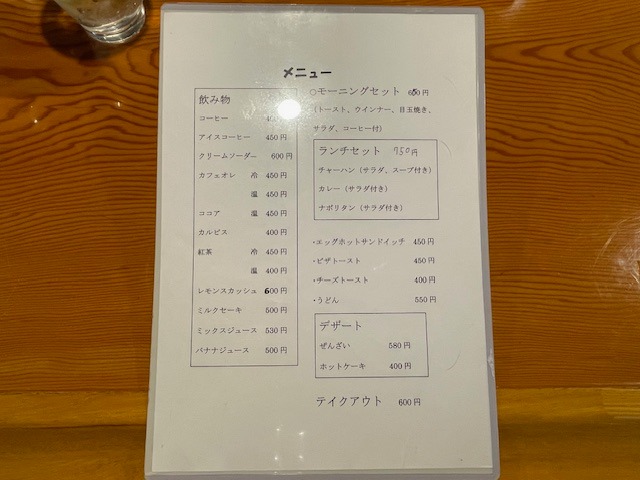 メニュー
飲み物
コーヒー 400円
アイスコーヒー 450円
クリームソーダ― 600円
カフェオレ 冷 450円
温 450円
ココア 温 450円
カルピス 400円
紅茶 冷 450円
温 400円
レモンスカッシュ 600円
ミルクセーキ 500円
ミックスジュース 530円
バナナジュース 500円
○モーニングセット 650円
（トースト、ウインナー、目玉焼き、
サラダ、コーヒー付）
ランチセット 750円
チャーハン（サラダ、スープ付き）
カレー（サラダ付き）
ナポリタン（サラダ付き）
・エッグホットサンドイッチ 450円
・ピザトースト 450円
・チーズトースト 400円
・うどん 550円
デザート
ぜんざい 580円
ホットケーキ 400円
テイクアウト 600円